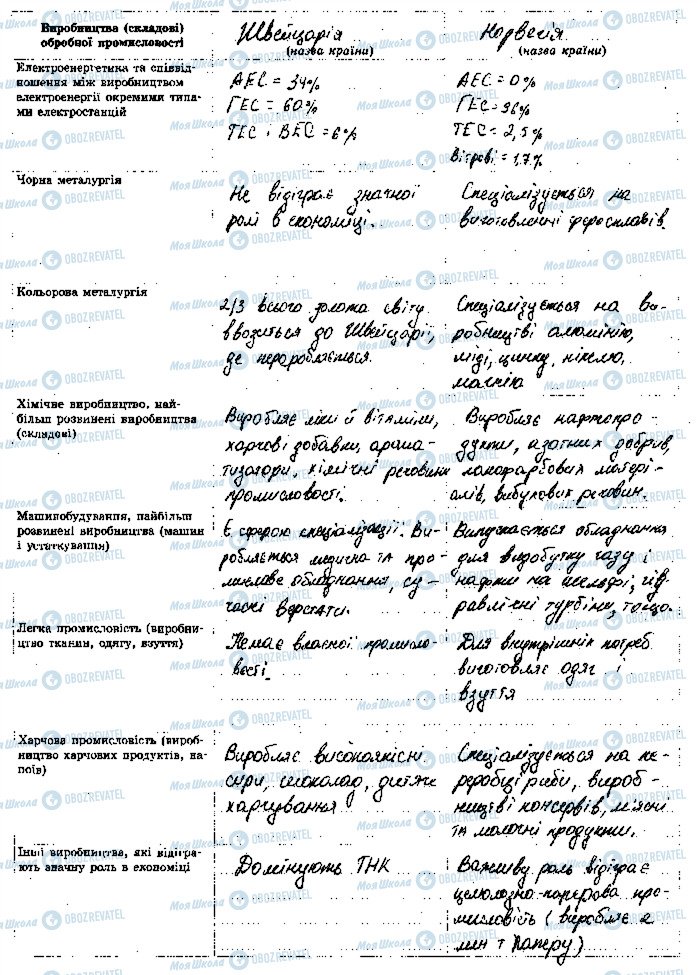 Виробництва (складові) обробної промисловості
Швейцарія
(назва країни)
Норвегія
(назва країни)
Електроенергетика та співвід-
ношення між виробництвом
електроенергії окремими типа-
ми електростанцій
АЕС = 34%
ГЕС = 60%
ТЕС і ВЕС = 6%
АЕС = 0%
ГЕС = 96%
ТЕС = 2,5%
Вітрові = 1.7%
Чорна металургія
Не відіграє значної
ролі в економіці.
Спеціалізується на
виготовленні феросплавів.
Кольорова металургія
2/3 всього золота світу
ввозиться до Швейцарії,
де переробляється.
Спеціалізується на ви-
робництві алюмінію,
міді, цинку, нікелю,
магнію
Хімічне виробництво, най-
більш розвинені виробництва
(складові)
Виробляє ліки й вітаміни,
харчові добавки, арома-
тизатори, хімічні речовини
промисловості.
Виробляє нафтопро-
дукти, азотних добрив,
лакофарбових матері-
алів, вибухових речовин.
Машинобудування, найбільш
розвинені виробництва (машин
і устаткування)
Є сферою спеціалізації. Ви-
робляється медична та про-
мислове обладнання, су-
часні верстати.
Випускається обладнання
для видобутку газу і
нафти на шельфі, гід-
равлічні турбіни, тощо.
Легка промисловість (виробни-
цтво тканин, одягу, взуття)
Немає власної промисло-
вості.
Для внутрішніх потреб
виготовляє одяг і
взуття
Харчова промисловість (вироб-
ництво харчових продуктів, на-
поїв)
Виробляє високоякісні
сири, шоколад, дитяче
харчування
Спеціалізується на пе-
реробці риби, вироб-
ництві консервів, м'ясні
та молочні продукти.
Інші виробництва, які відігра-
ють значну роль в економіці
Домінують ТНК
Важливу роль відіграє
целюлозно-паперова про-
мисловість (виробляє 2
млн т паперу)